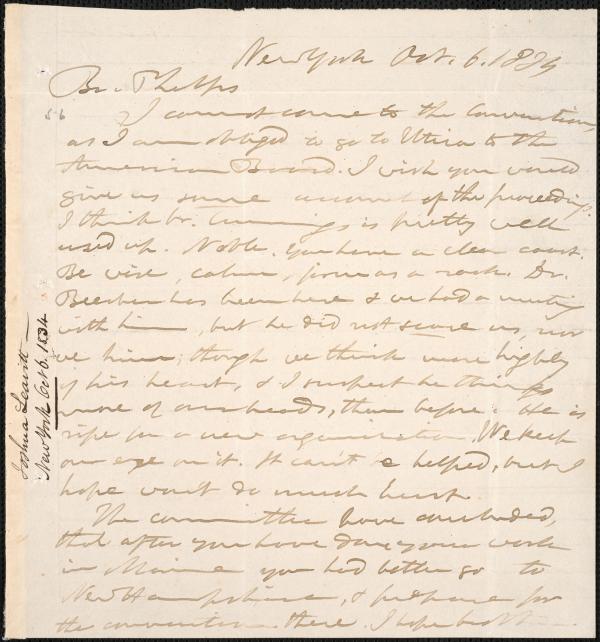 New York Oct. 6. 1834
Br. Phelps
56
I cannot come to the Convention,
as I am obliged to go to Utica to the
American Board. I wish you would
give us some account of the proceedings.
I think br. Cummings is pretty well
used up. Noble. You have a clear coast.
Be wise, calm, firm as a rock. Dr.
Beecher has been here & we had a meeting
with him, but he did not scare us, nor
we him; though we think more highly
of his heart, & I suspect he thinks
more of our heads, than before. He is
ripe for a new organization. We keep
our eye on it. It can't be helped, but I
hope won't do much hurt.
The committee have concluded,
that after you have done your work
in Maine you had better go to
New Hampshire, & prepare for
the convention there. I hope
Joshua Leavitt—
New York Oct 6. 1834